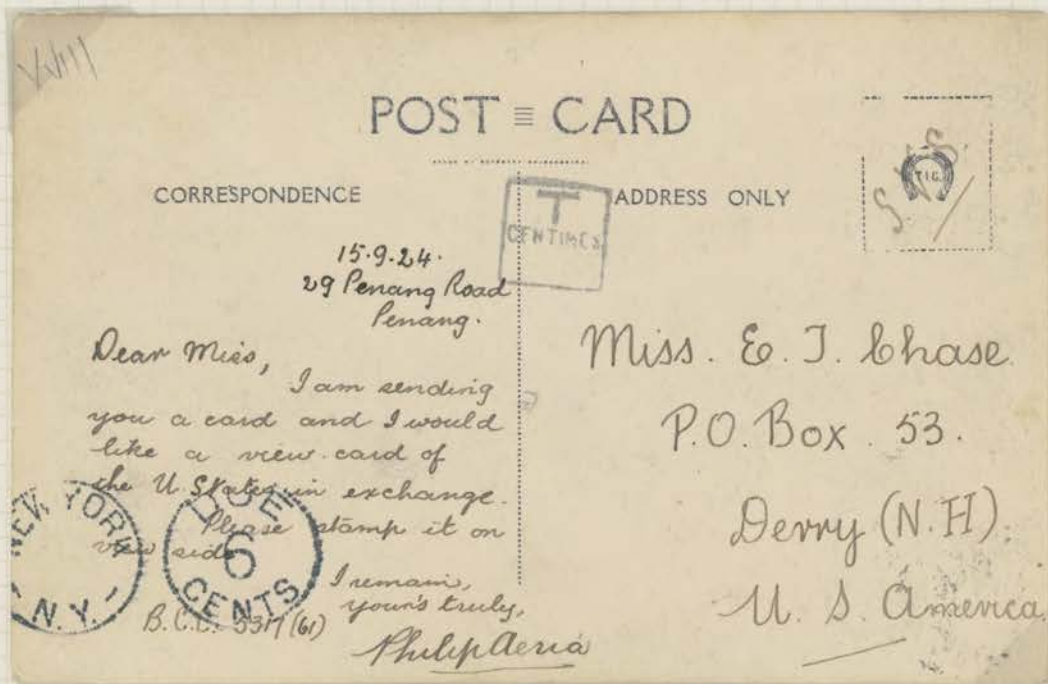 POST CARD
CORRESPONDENCE
ADDRESS ONLY
T
CENTIMES
T.I.C.
15.9.24.
29 Penang Road
Penang.
Dear Miss,
I am sending
you a card and I would
like a view card of
the U. States in exchange.
Please stamp it on
view side
I remain,
your's truly,
Philip Aeria
B.C.C. 5317 (61)
NEW YORK
N.Y.
DUE
6
CENTS
Miss. E. J. Chase
P.O. Box. 53.
Derry (N.H).
U. S. America